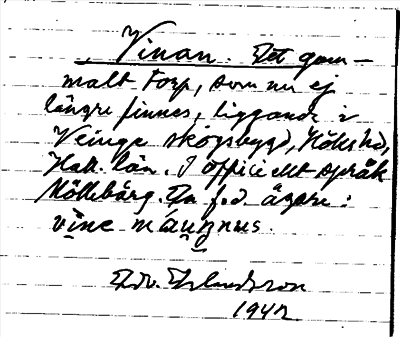 Vinan. Det gam-
malt torp, som nu ej
längre finnes, liggande i
Veinge skogsbygd, Höks hd,
Hall. län. I officiellt språk
Möllebärg. En f.d. ägare:
vine máuŋnus.
Edv.
1942